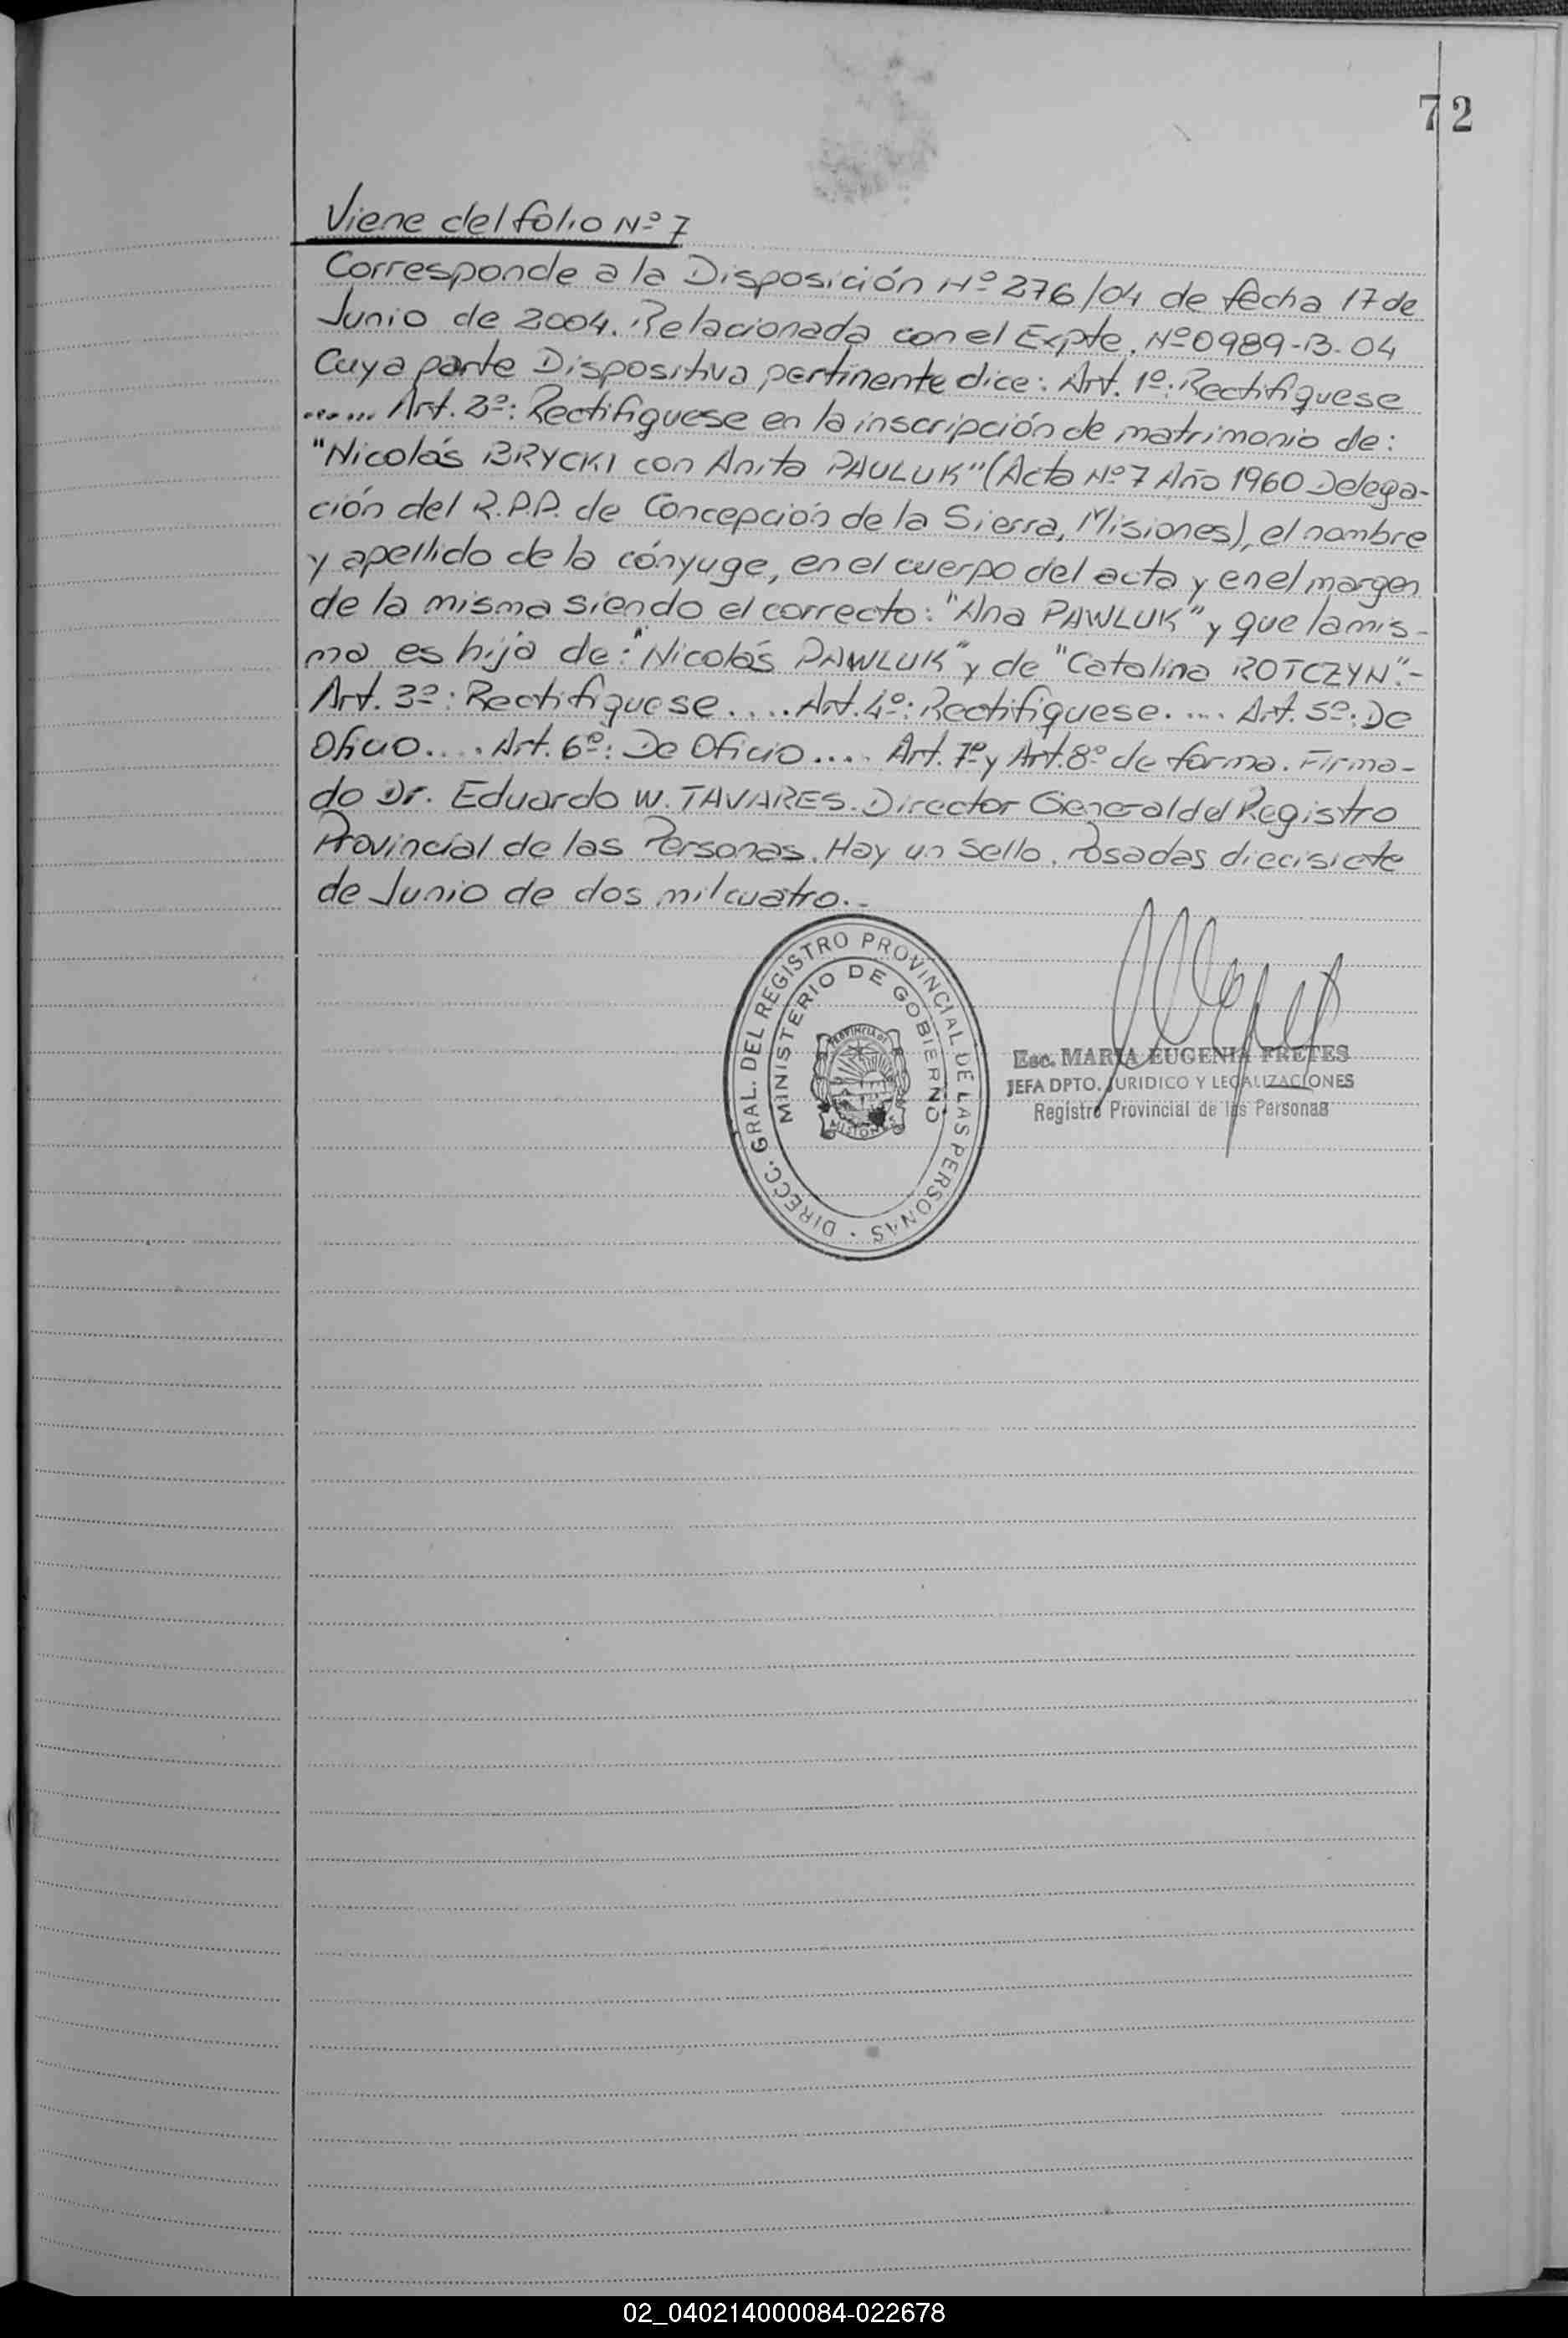 72
Viene del folio Nº 7
Corresponde a la Disposición Nº 276/04 de fecha 17 de
Junio de 2004. Relacionada con el Expte. Nº 0989-B-04
Cuya parte Dispositiva pertinente dice: Art. 1º: Rectifiquese
...... Art. 2º: Rectifiquese en la inscripción de matrimonio de:
"Nicolás BRYCKI con Anita PAULUK" (Acta Nº 7 Año 1960 Delega-
ción del R.P.P. de Concepción de la Sierra, Misiones), el nombre
y apellido de la cónyuge, en el cuerpo del acta y en el margen
de la misma siendo el correcto: "Ana PAWLUK" y que la mis-
ma es hija de: "Nicolás PAWLUK" y de "Catalina ROTCZYN".-
Art. 3º: Rectifiquese.... Art. 4º: Rectifiquese..... Art. 5º: De
Oficio.... Art. 6º: De Oficio.... Art. 7º y Art. 8º de forma. Firma-
do Dr. Eduardo W. TAVARES. Director General del Registro
Provincial de las Personas. Hay un Sello. Posadas diecisiete
de Junio de dos mil cuatro.-
DIRECC. GRAL. DEL REGISTRO PROVINCIAL DE LAS PERSONAS
MINISTERIO DE GOBIERNO
PROVINCIA DE
MISIONES
Esc. MARIA EUGENIA FRETES
JEFA DPTO. JURIDICO Y LEGALIZACIONES
Registro Provincial de las Personas
02_040214000084-022678